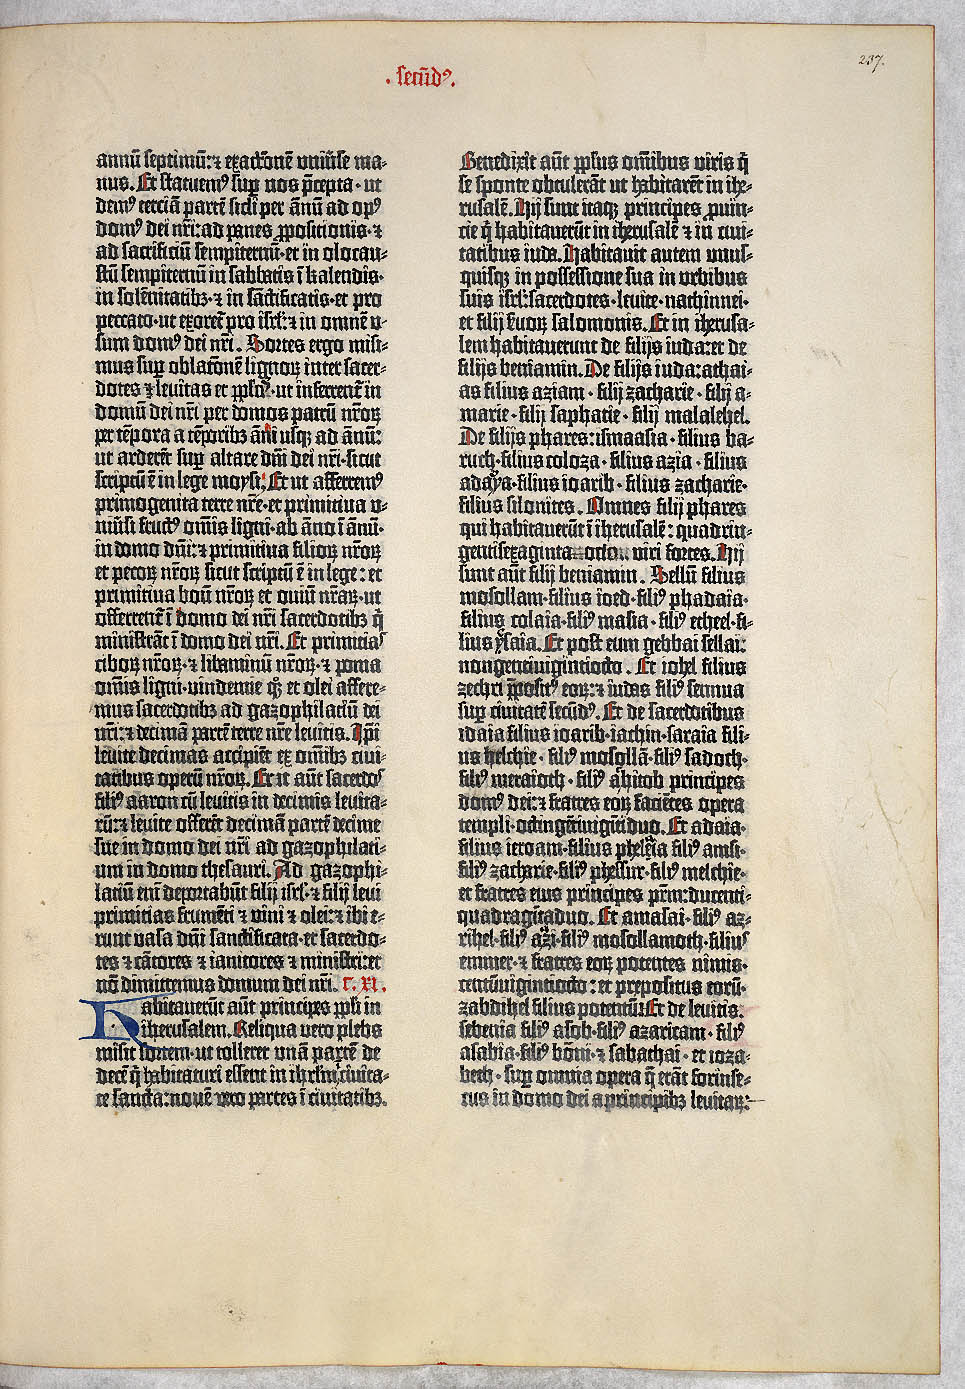 237.
. secūdꝰ.
annū septimū: ⁊ exactōnē vniūse ma-
nus. Et statuemꝰ suꝑ nos p̄cepta · ut
demꝰ terciā partē sicli per ānū ad opꝰ
domꝰ dei nr̄i: ad panes ꝓposicionis · ⁊
ad sacrificiū sempiternū · et in olocau-
stū sempiternū in sabbatis ī kalendis·
in solēnitatibꝫ · ⁊ in sāctificatis · et pro
peccato · ut exoret̄ pro isrl̄: ⁊ in omnē v-
sum domꝰ dei nr̄i. Sortes ergo misi-
mus suꝑ oblatōnē lignoꝝ inter sacer-
dotes ⁊ levitas et ppl̄os · ut inferrent̄ in
domū dei nr̄i per domos patrū nr̄oꝝ
per tēpora a tēporibꝫ āni usqꝫ ad ānū:
ut arderēt suꝑ altare dn̄i dei nr̄i · sicut
scriptū ē in lege moysi. Et ut afferremꝰ
primogenita terre nr̄e · et primitiua v-
niūsi fructꝰ om̄is ligni · ab āno ī ānū·
in domo dn̄i: ⁊ primitiua filioꝝ nr̄oꝝ
et pecoꝝ nr̄oꝝ sicut scriptū ē in lege: et
primitiua boū nr̄oꝝ et ouiū nr̄aꝝ · ut
offerrent̄ ī domo dei nr̄i sacerdotibꝫ q̄
ministrāt ī domo dei nr̄i. Et primitias
ciboꝝ nr̄oꝝ · ⁊ libaminū nr̄oꝝ · ⁊ poma
om̄is ligni · vindemie qꝫ et olei affere-
mus sacerdotibꝫ ad gazophilaciū dei
nr̄i: ⁊ decimā partē terre nr̄e leuitis. Ip̄i
leuite decimas accipiēt ex om̄ibꝫ ciui-
tatibus operū nr̄oꝝ. Et it aūt sacerdos
filiꝰ aaron cū leuitis in decimis leuita-
rū: ⁊ leuite offerēt decimā partē decime
sue in domo dei nr̄i ad gazophilaci-
um in domo thesauri. Ad gazophi-
laciū eni deportabūt filij isrl̄ · ⁊ filij leui
primitias frumēti ⁊ vini ⁊ olei: ⁊ ibi e-
runt vasa dn̄i sanctificata · et sacerdo-
tes ⁊ cātores ⁊ ianitores ⁊ ministri: et
nō dimittemus domum dei nr̄i. C. XI.
Habitauerūt aūt principes ppl̄i in
iherusalem. Reliqua vero plebs
misit sortem · ut tolleret vnā partē de
decē q̄ habitaturi essent in ihrl̄m ciuita-
te sancta: nouē vero partes ī ciuitatibꝫ.
Benedixit aūt ppl̄us om̄ibus viris q̄
se sponte obtulerāt ut habitarēt in ihe-
rusalē. Hij sunt itaqꝫ principes ꝓuin-
cie q̄ habitauerūt in iherusalē ⁊ in ciui-
tatibus iuda. Habitauit autem vnus-
quisqꝫ in possessione sua in vrbibus
suis isrl̄: sacerdotes · leuite · nathinnei·
et filij ẜuoꝝ salomonis. Et in iherusa-
lem habitauerunt de filijs iuda: et de
filijs beniamin. De filijs iuda: athai-
as filius aziam · filij zacharie · filij a-
marie · filij saphatie · filij malalehel.
De filijs phares: ismaasia · filius ba-
ruch · filius coloza · filius azia · filius
adaya · filius ioarib · filius zacharie·
filius silonites. Omnes filij phares
qui habitauerūt ī iherusalē: quadrin-
gentisexaginta octo viri fortes. Hij
sunt aūt filij beniamin. Sellū filius
mosollam · filius ioed · filiꝰ phadaia·
filius colaia · filiꝰ masia · filiꝰ etheel · fi-
lius ysaia. Et post eum gebbai sellai:
nongentiuigintiocto. Et iohel filius
zechri p̄positꝰ eoꝝ: ⁊ iudas filiꝰ sennua
suꝑ ciuitatē secūdꝰ. Et de sacerdotibus
idaia filius ioarib · iachin · saraia fili-
us helchie · filiꝰ mosollā · filiꝰ sadoch·
filiꝰ meraioth · filiꝰ ahitob principes
domꝰ dei: ⁊ fratres eoꝝ faciētes opera
templi · octingētiuigītiduo. Et adaia·
filius ieroam · filius phelelia filiꝰ amsi·
filiꝰ zacharie · filiꝰ phessur · filiꝰ melchie·
et fratres eius principes pr̄m: ducenti-
quadragītaduo. Et amasai · filiꝰ az-
rihel · filiꝰ aazi · filiꝰ mosollamoth · filius
emmer · ⁊ fratres eoꝝ potentes nimis·
centūuigintiocto: et prepositus eorū·
zabdihel filius potentū. Et de leuitis.
sebenia filiꝰ asob · filiꝰ azaricam · filiꝰ
asabia · filiꝰ bōni · ⁊ sabathai · et ioza-
beth · suꝑ omnia opera q̄ erāt forinse-
cus in domo dei a principibꝫ leuitaꝝ: